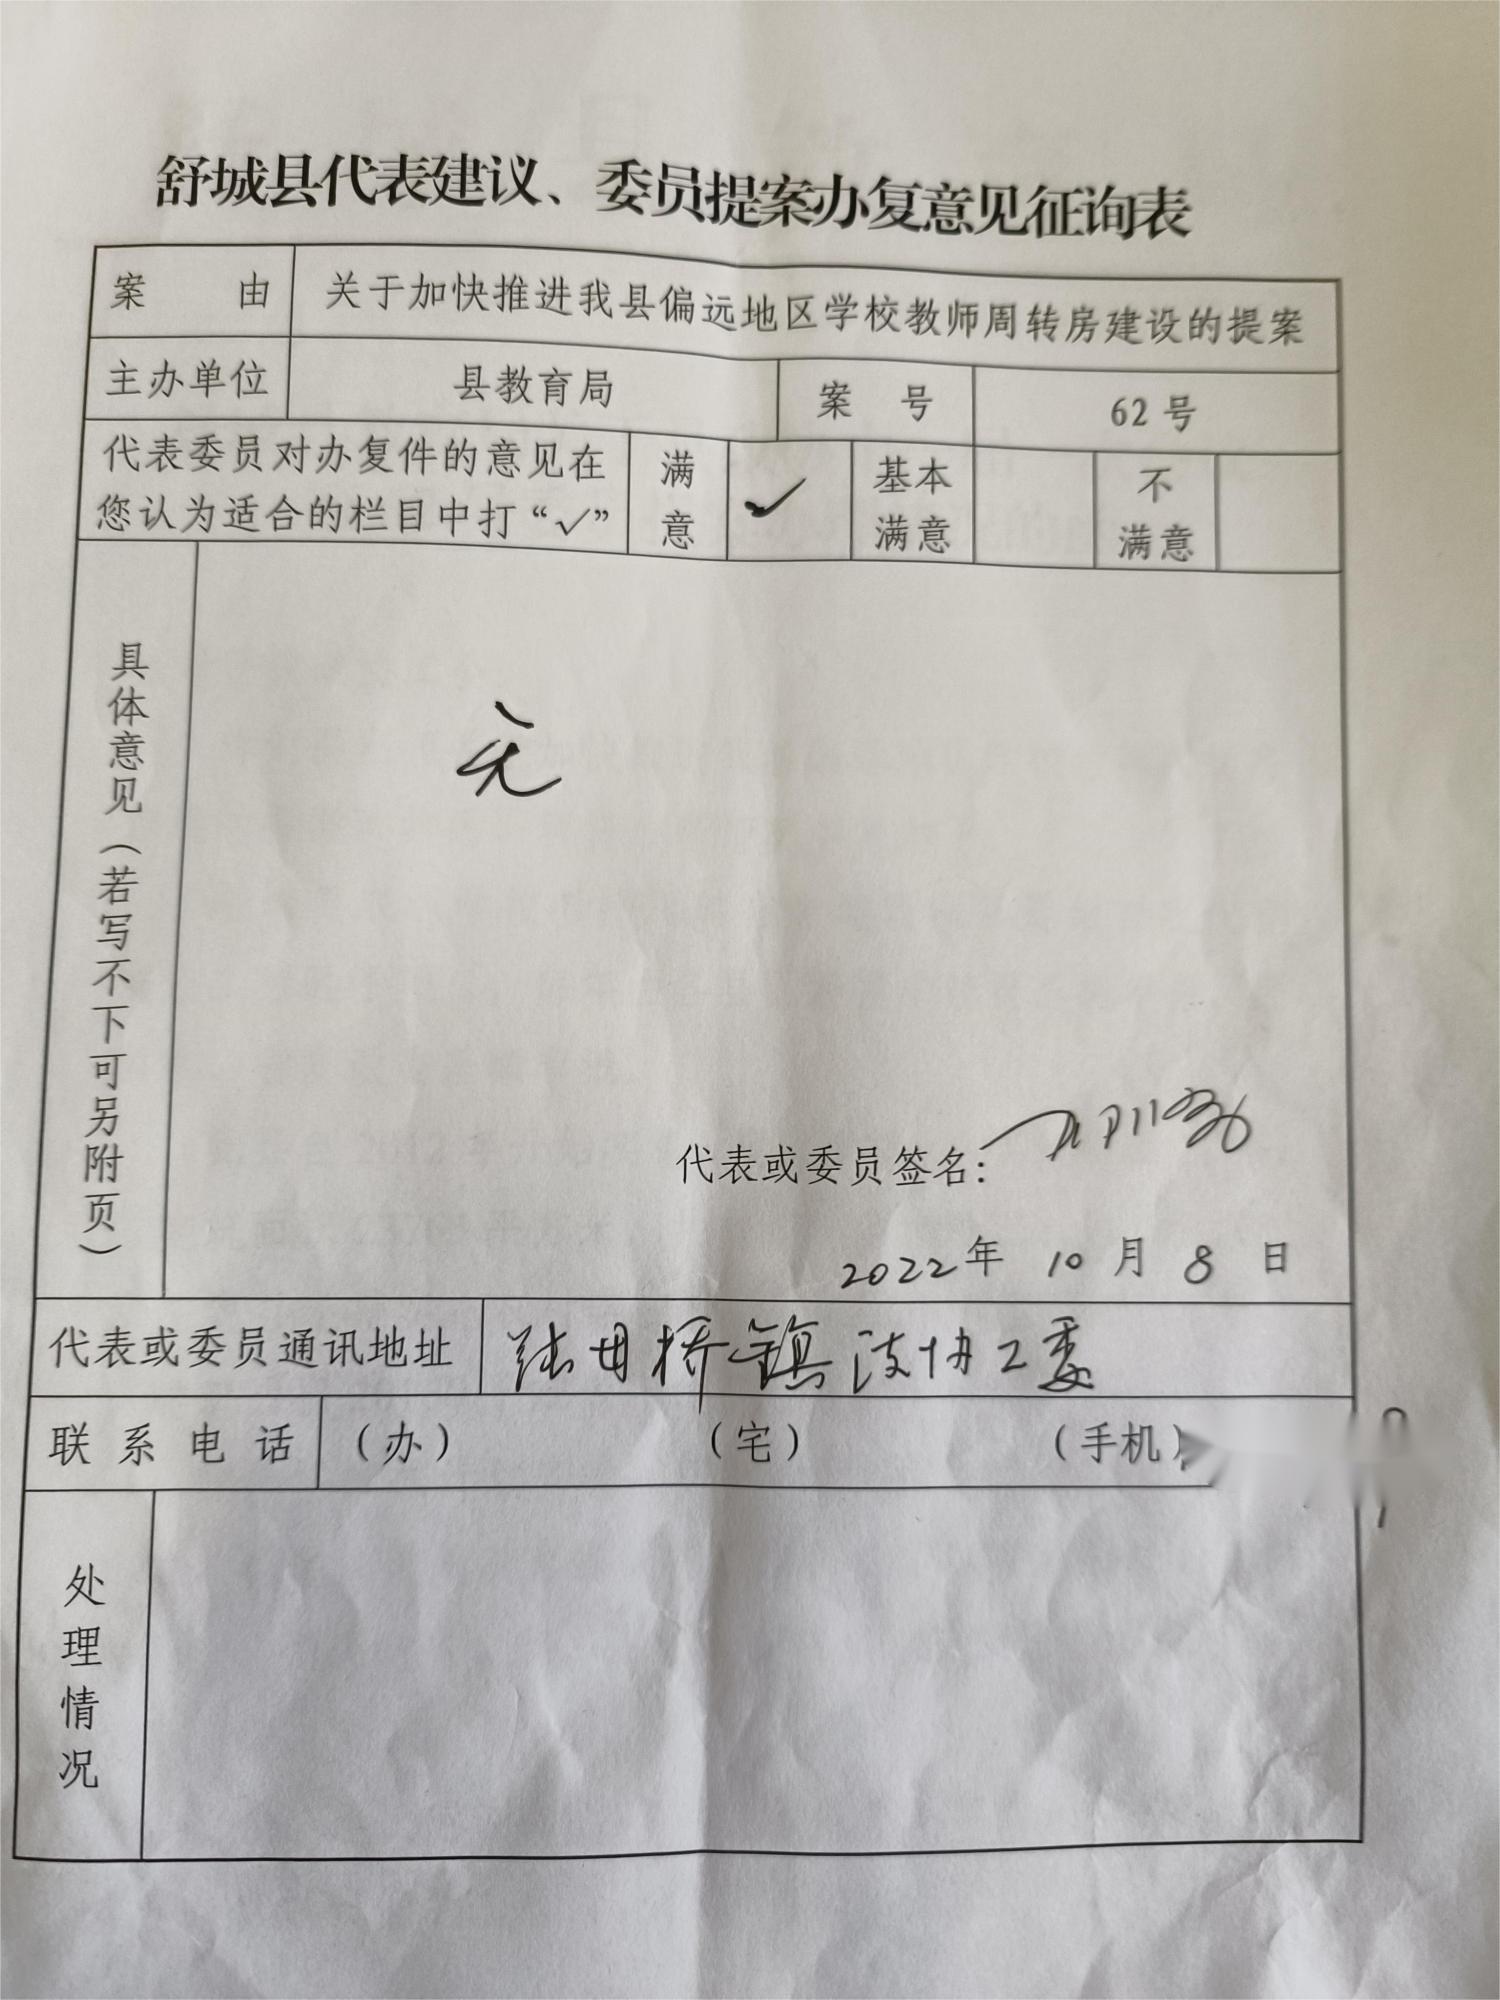 舒城县代表建议、委员提案办复意见征询表
案 由 关于加快推进我县偏远地区学校教师周转房建设的提案
主办单位 县教育局 案 号 62号
代表委员对办复件的意见在您认为适合的栏目中打“√” 满意 ✓ 基本满意 不满意
具体意见（若写不下可另附页）
无
代表或委员签名：
2022年 10月 8 日
代表或委员通讯地址 张母桥镇政协工委
联系电话 （办） （宅） （手机）
处理情况